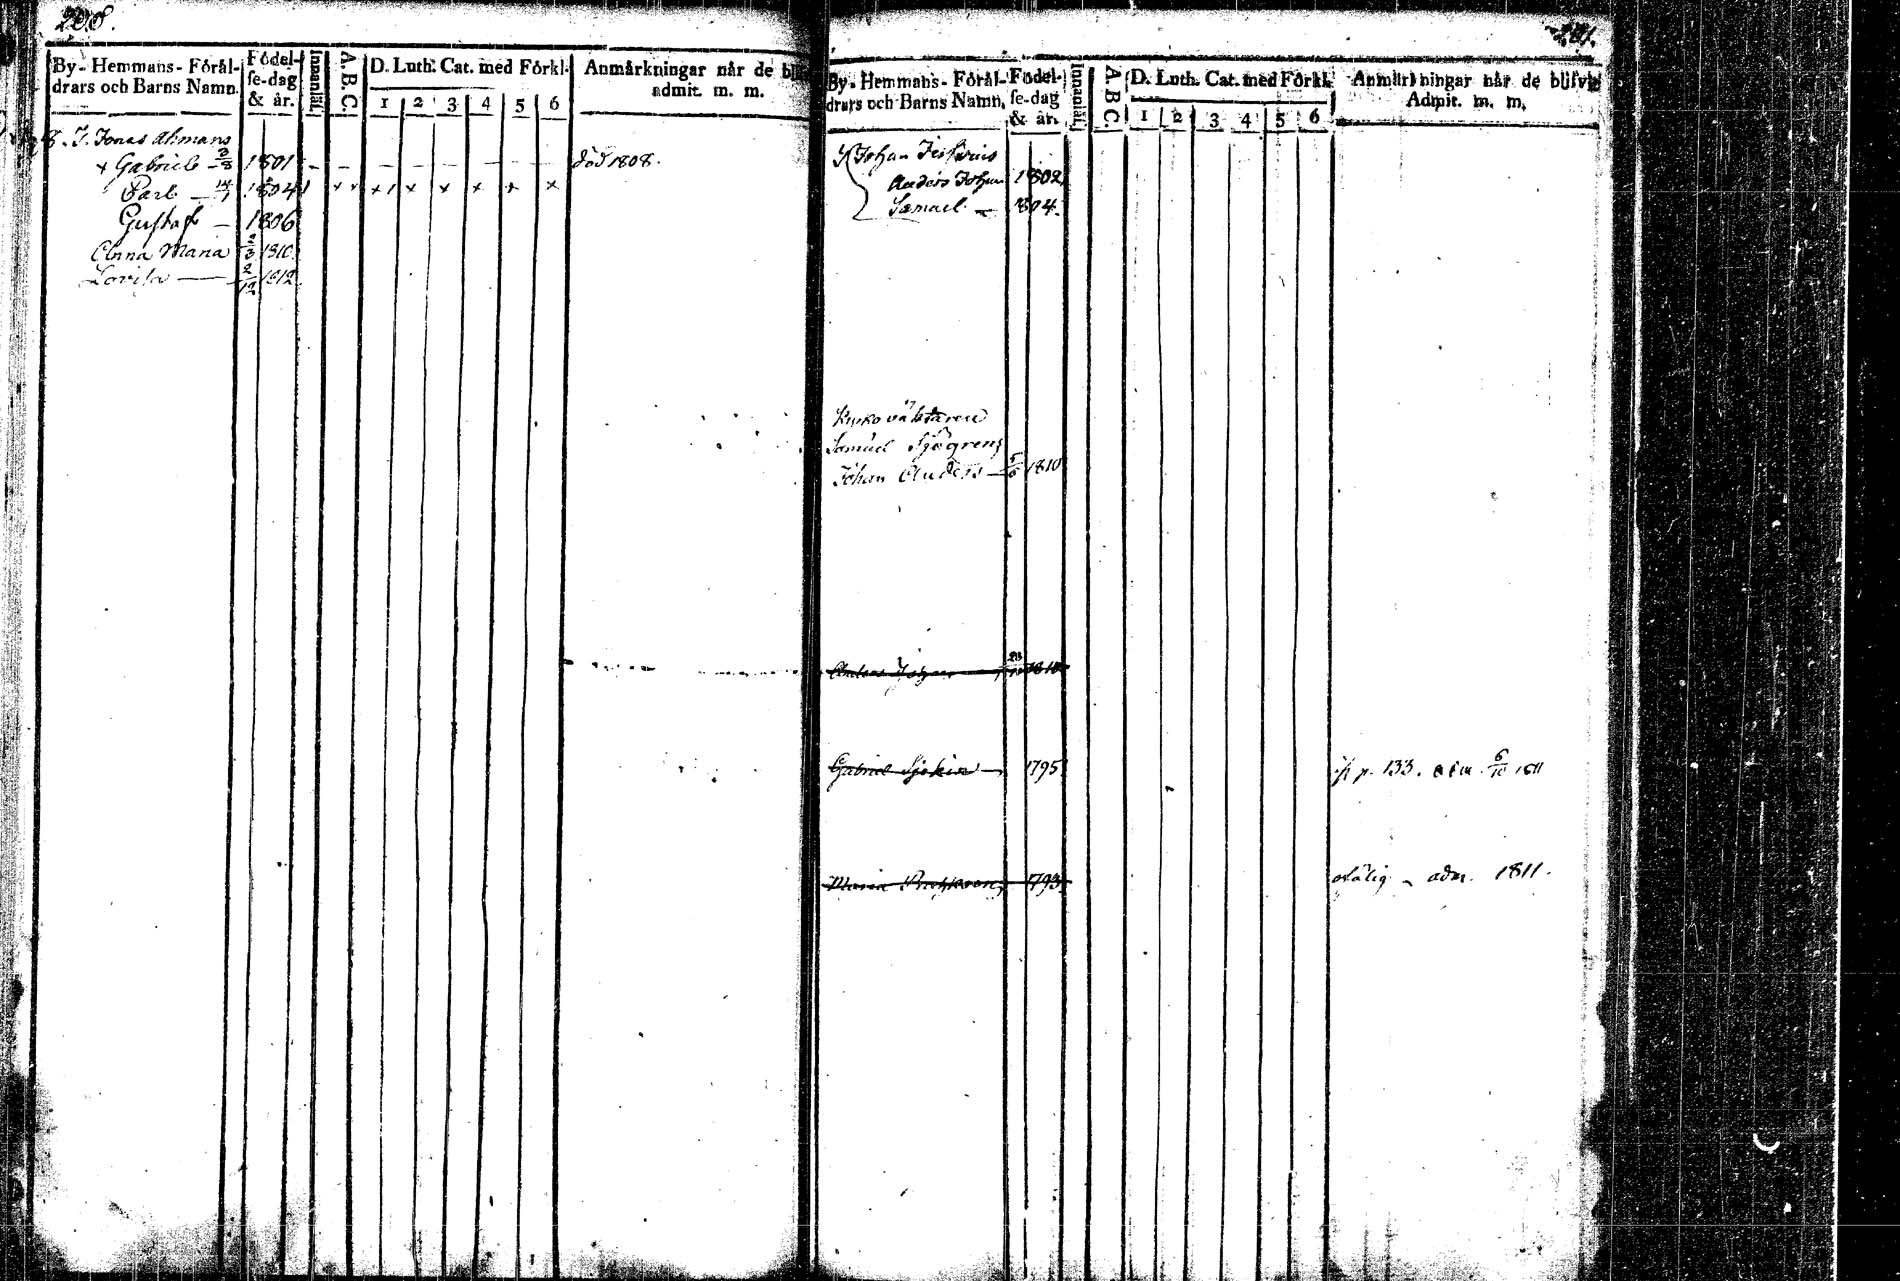 208.
By- Hemmans- Förål-
drars och Barns Namn.
Födel-
se-dag
& år.
Innanläs.
A. B. C.
D. Luth: Cat. med Förkl.
1 2 3 4 5 6
Anmärkningar når de
admit. m. m.
J. Jonas Ahmans
+ Gabriel – 3/8 1801 – – – – – – – – död 1808.
Carl – 14/1 1804 + + + + + + + +
Gustaf – 1806
Anna Maria 2/3 1810
Lovisa — 2/12 1812
By- Hemmans- Förål-
drars och Barns Namn,
Födel-
se-dag
& år.
Innanläs.
A. B. C.
D. Luth. Cat. med Förkl.
1 2 3 4 5 6
Anmärkningar når de blifvit
Admit. m. m,
Johan
Anders Johan 1802
Samuel – 1804.
Kyrko väktaren
Samuel Sjögrens
Johan Anders – 5/6 1810
Anders Johan 1810
Gabriel – 1795 p. 133. adm. 6/10 1811
Maria 1793 adm. 1811.